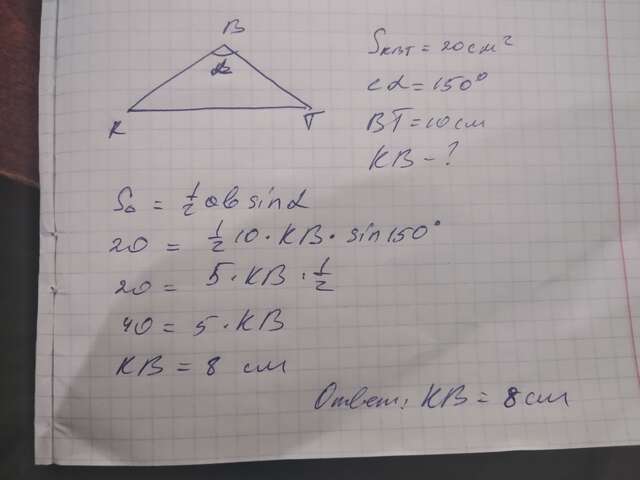 B
α
K
T
S_KBT = 20 см²
∠α = 150°
BT = 10 см
KB - ?
S△ = 1/2 ab sin α
20 = 1/2 10 · KB · sin 150°
20 = 5 · KB · 1/2
40 = 5 · KB
KB = 8 см
Ответ: KB = 8 см